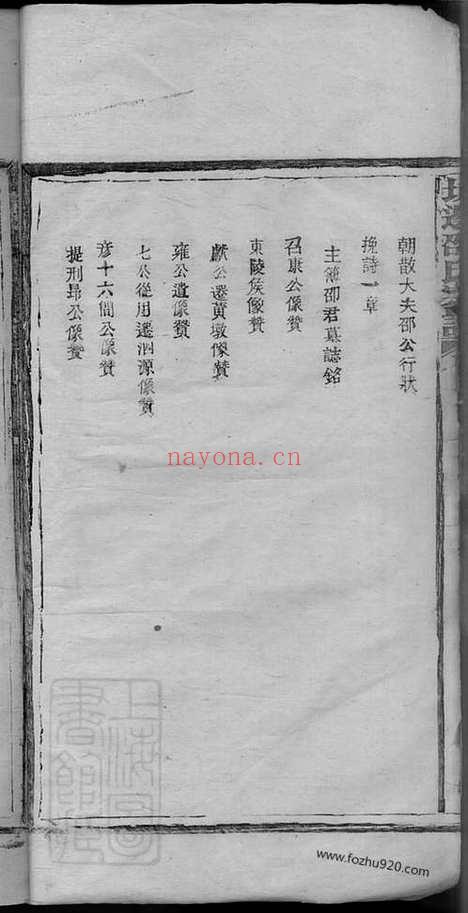 朝散大夫邵公行狀
挽詩一章
主簿邵君墓誌銘
召康公像贊
東陵侯像贊
獻公遷黃墩像贊
雍公遺像贊
七公從用遷泗源像贊
彥十六間公像贊
提刑昻公像贊
nayona.cn
上海圖書館藏
www.fozhu920.com